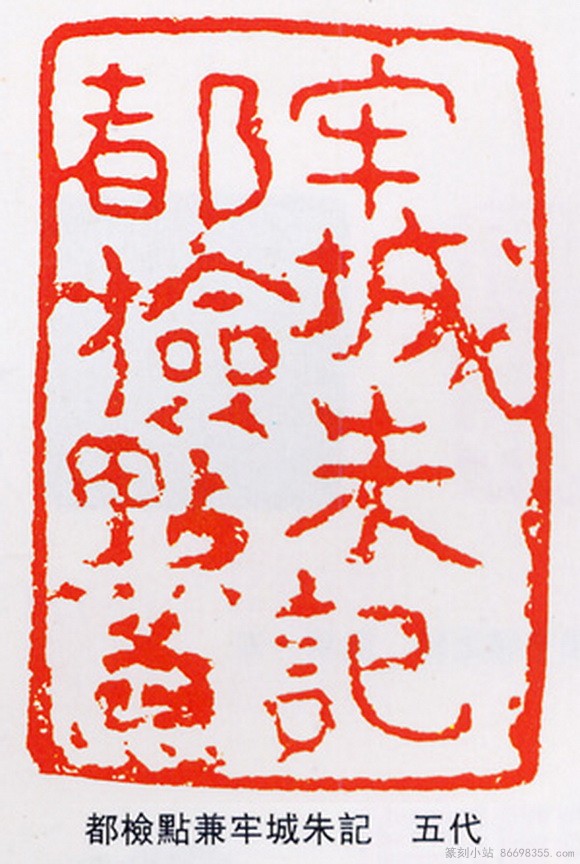 都檢點兼
牢城朱記
都檢點兼牢城朱記 五代
篆刻小站 86698355.com